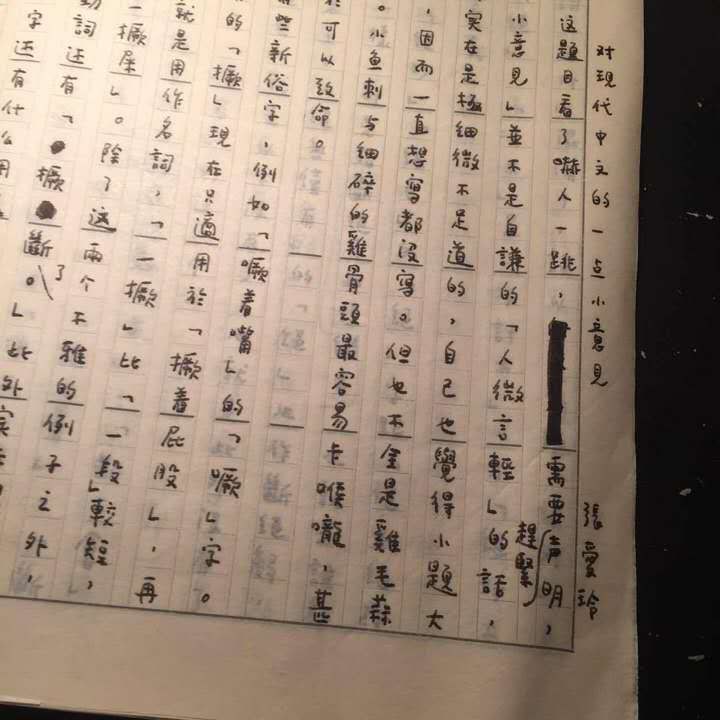 对現代中文的一点小意見 張愛玲
这題目看了嚇人一跳,需要声明,
小意見」並不是自謙的「人微言輕」的話,
提醒
实在是極細微不足道的,自己也覺得小題大
,因而一直想寫都没寫。但也不全是雞毛蒜
。小鱼刺与細碎的雞骨頭最容易卡喉嚨,甚
於可以致命。
些新俗字,例如「噘着嘴」的「噘」字。
的「撅」現在只適用於「撅着屁股」,再
就是用作名詞,「一撅」比「一段」較短,
一撅屎」。除了这兩个不雅的例子之外,
動詞还有「撅斷了。」此外
字还有什么用